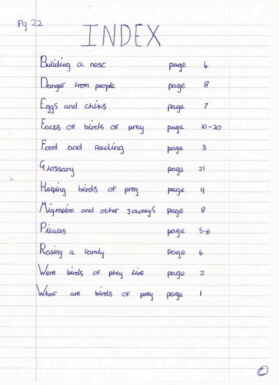 Pg 22
INDEX
Building a nest page 6
Danger from people page 8
Eggs and chiks page 7
Faces of birds of prey page 10-20
Food and page 3
Glossary page 21
Helping birds of prey page 9
Migration and other Journeys page 8
page 5-6
a family page 6
Were birds of prey live page 2
What are birds of prey page 1